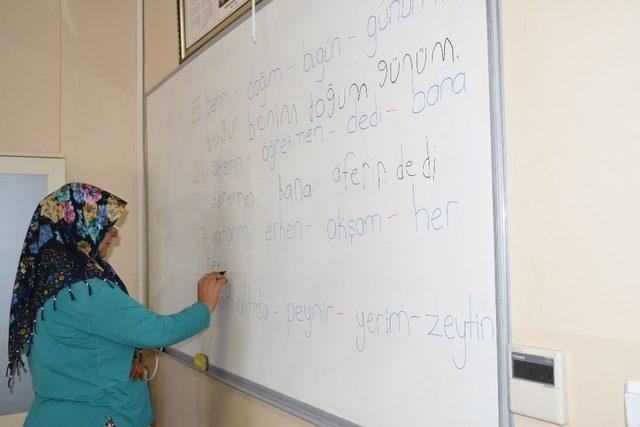 25. benim - doğum - bugün - günüm
bugün benim doğum günüm.
26. aferin - öğretmen - dedi - bana
öğretmen bana aferin dedi
27. yatarım - erken - akşam - her
her
kahvaltıda - peynir - yerim - zeytin